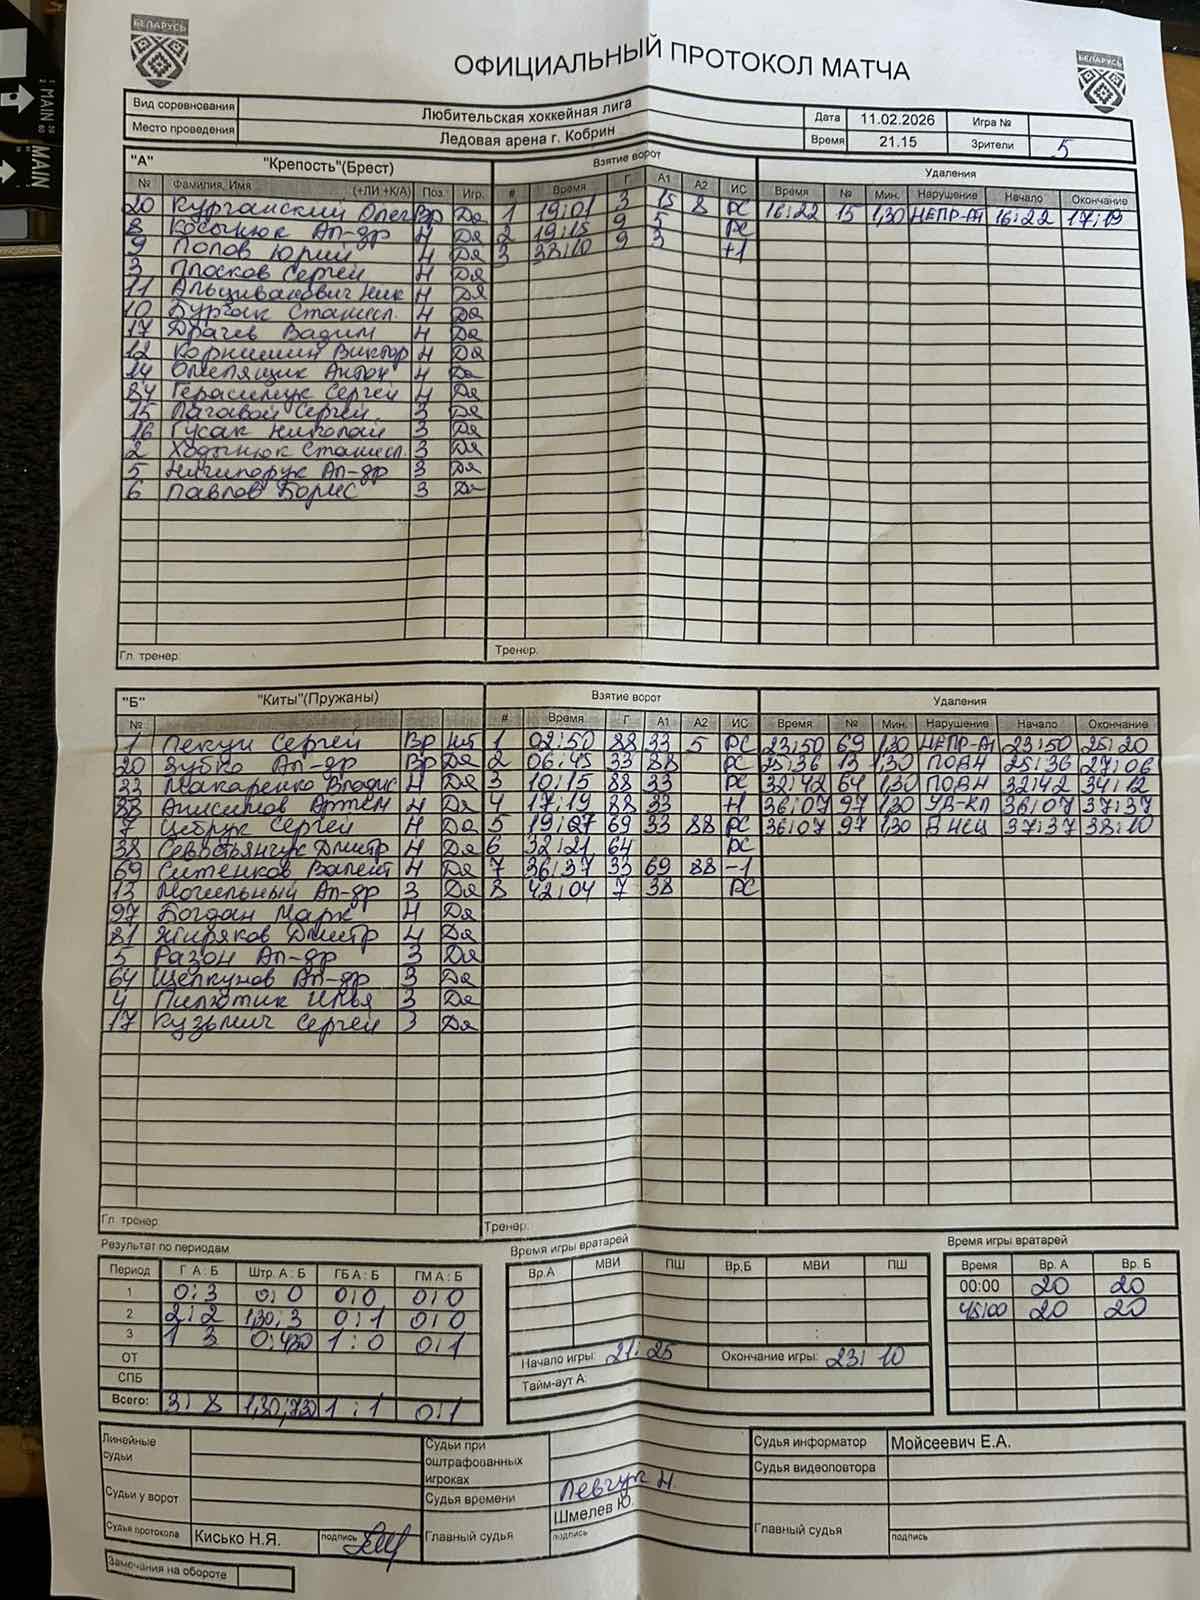 БЕЛАРУСЬ
БЕЛАРУСЬ
ОФИЦИАЛЬНЫЙ ПРОТОКОЛ МАТЧА
Вид соревнования Любительская хоккейная лига Дата 11.02.2026 Игра №
Место проведения Ледовая арена г. Кобрин Время 21.15 Зрители 5
"А" "Крепость"(Брест) Взятие ворот Удаления
№ Фамилия, Имя (+ЛИ +К/А) Поз. Игр. # Время Г А1 А2 ИС Время № Мин. Нарушение Начало Окончание
20 Курганский Олег Вр Да 1 19:01 3 15 8 РС 16:22 15 1,30 НЕПР-АТ 16:22 17:19
8 Косынюк Ал-др Н Да 2 19:15 9 5 РС
9 Попов Юрий Н Да 3 38:10 9 3 +1
3 Плосков Сергей Н Да
11 Альциванович Ник Н Да
10 Бурчик Станисл. Н Да
17 Драчев Вадим Н Да
12 Корнишин Виктор Н Да
14 Омелящик Антон Н Да
84 Герасимук Сергей Н Да
15 Лаговой Сергей З Да
16 Гусак Николай З Да
2 Ходынюк Станисл. З Да
5 Ничипорук Ал-др З Да
6 Павлов Борис З Да
Гл. тренер: Тренер:
"Б" "Киты"(Пружаны) Взятие ворот Удаления
№ # Время Г А1 А2 ИС Время № Мин. Нарушение Начало Окончание
1 Пекун Сергей Вр Нет 1 02:50 88 33 5 РС 23:50 69 1,30 НЕПР-АТ 23:50 25:20
20 Зубко Ал-др Вр Да 2 06:45 33 88 РС 25:36 13 1,30 ПОДН 25:36 27:06
33 Макаренко Владис Н Да 3 10:15 88 33 РС 32:42 64 1,30 ПОДН 32:42 34:12
88 Анисимов Артем Н Да 4 17:19 88 33 +1 36:07 97 1,30 УД-КЛ 36:07 37:37
7 Цебрук Сергей Н Да 5 19:27 69 33 88 РС 36:07 97 1,30 37:37 38:10
38 Севостьянчук Дмитр Н Да 6 32:21 64 РС
69 Ситенков Валент Н Да 7 36:37 33 69 88 -1
13 Могильный Ал-др З Да 8 42:04 7 38 РС
97 Богдан Марк Н Да
81 Жиряков Дмитр Н Да
5 Разон Ал-др З Да
64 Щелкунов Ал-др З Да
4 Пилютик Илья З Да
17 Кузьмич Сергей З Да
Гл. тренер Тренер:
Результат по периодам Время игры вратарей Время игры вратарей
Период Г А : Б Штр. А : Б ГБ А : Б ГМ А : Б Вр.А МВИ ПШ Вр.Б МВИ ПШ Время Вр. А Вр. Б
1 0:3 0:0 0:0 0:0 00:00 20 20
2 2:2 1,30:3 0:1 0:0 45:00 20 20
3 1 3 0:4,30 1:0 0:1
ОТ Начало игры: 21:25 Окончание игры: 23:10
СПБ Тайм-аут А:
Всего: 3:8 1,30:7,30 1:1 0:1
Линейные судьи Судьи при оштрафованных игроках Судья информатор Мойсеевич Е.А.
Судья видеоповтора
Судьи у ворот Судья времени Левчук Н.
Судья протокола Кисько Н.Я. подпись Главный судья Шмелев Ю. подпись Главный судья подпись
Замечания на обороте